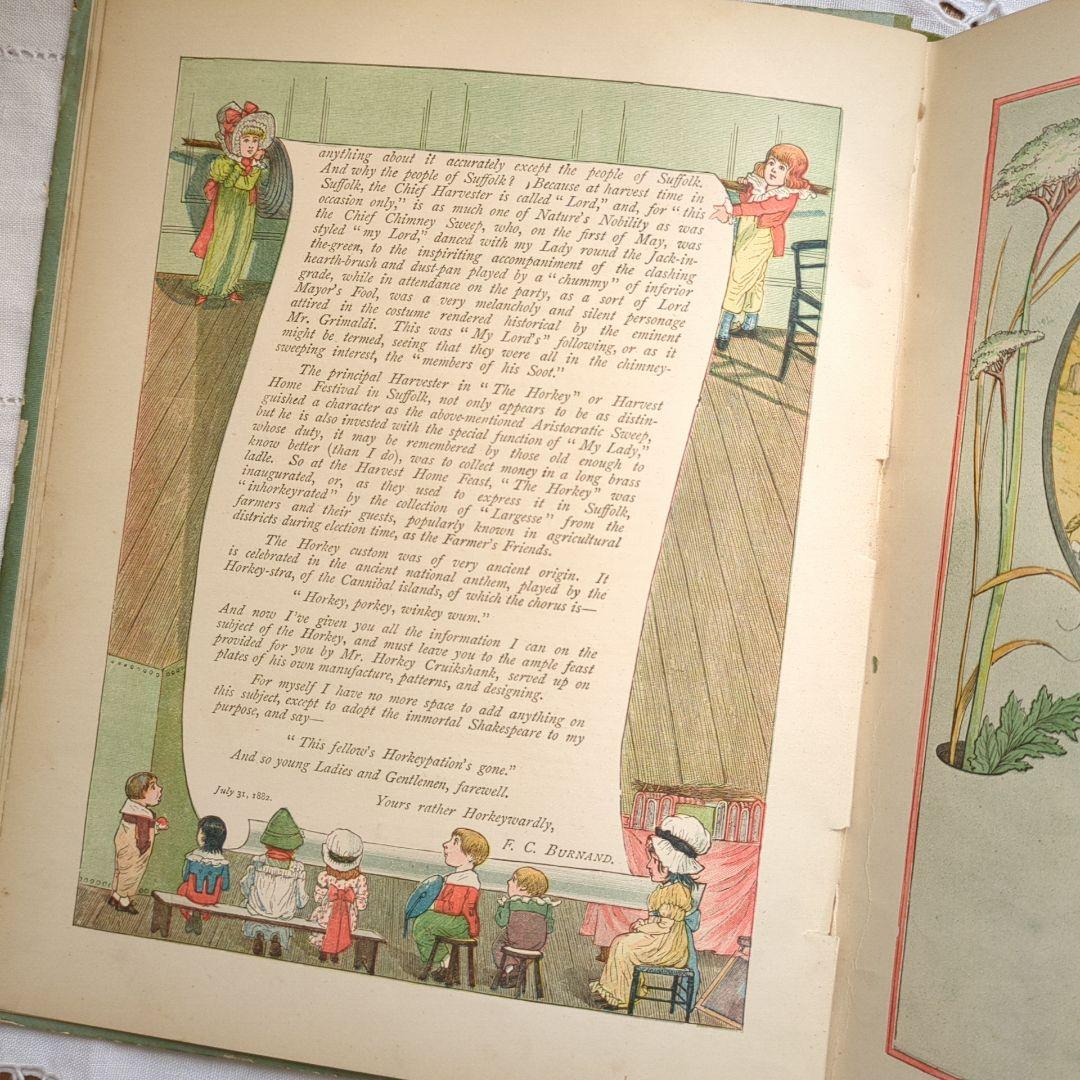 anything about it accurately except the people of Suffolk.
And why the people of Suffolk? Because at harvest time in
Suffolk, the Chief Harvester is called "Lord," and, for "this
occasion only," is as much one of Nature's Nobility as was
the Chief Chimney Sweep, who, on the first of May, was
styled "my Lord," danced with my Lady round the Jack-in-
the-green, to the inspiriting accompaniment of the clashing
hearth-brush and dust-pan played by a "chummy" of inferior
grade, while in attendance on the party, as a sort of Lord
Mayor's Fool, was a very melancholy and silent personage
attired in the costume rendered historical by the eminent
Mr. Grimaldi. This was "My Lord's" following, or as it
might be termed, seeing that they were all in the chimney-
sweeping interest, the "members of his Soot."
The principal Harvester in "The Horkey" or Harvest
Home Festival in Suffolk, not only appears to be as distin-
guished a character as the above-mentioned Aristocratic Sweep,
but he is also invested with the special function of "My Lady,"
whose duty, it may be remembered by those old enough to
know better (than I do), was to collect money in a long brass
ladle. So at the Harvest Home Feast, "The Horkey" was
inaugurated, or, as they used to express it in Suffolk,
"inhorkeyrated" by the collection of "Largesse" from the
farmers and their guests, popularly known in agricultural
districts during election time, as the Farmer's Friends.
The Horkey custom was of very ancient origin. It
is celebrated in the ancient national anthem, played by the
Horkey-stra, of the Cannibal islands, of which the chorus is—
"Horkey, porkey, winkey wum."
And now I've given you all the information I can on the
subject of the Horkey, and must leave you to the ample feast
provided for you by Mr. Horkey Cruikshank, served up on
plates of his own manufacture, patterns, and designing.
For myself I have no more space to add anything on
this subject, except to adopt the immortal Shakespeare to my
purpose, and say—
"This fellow's Horkeypation's gone."
And so young Ladies and Gentlemen, farewell.
Yours rather Horkeywardly,
July 31, 1882.
F. C. BURNAND.